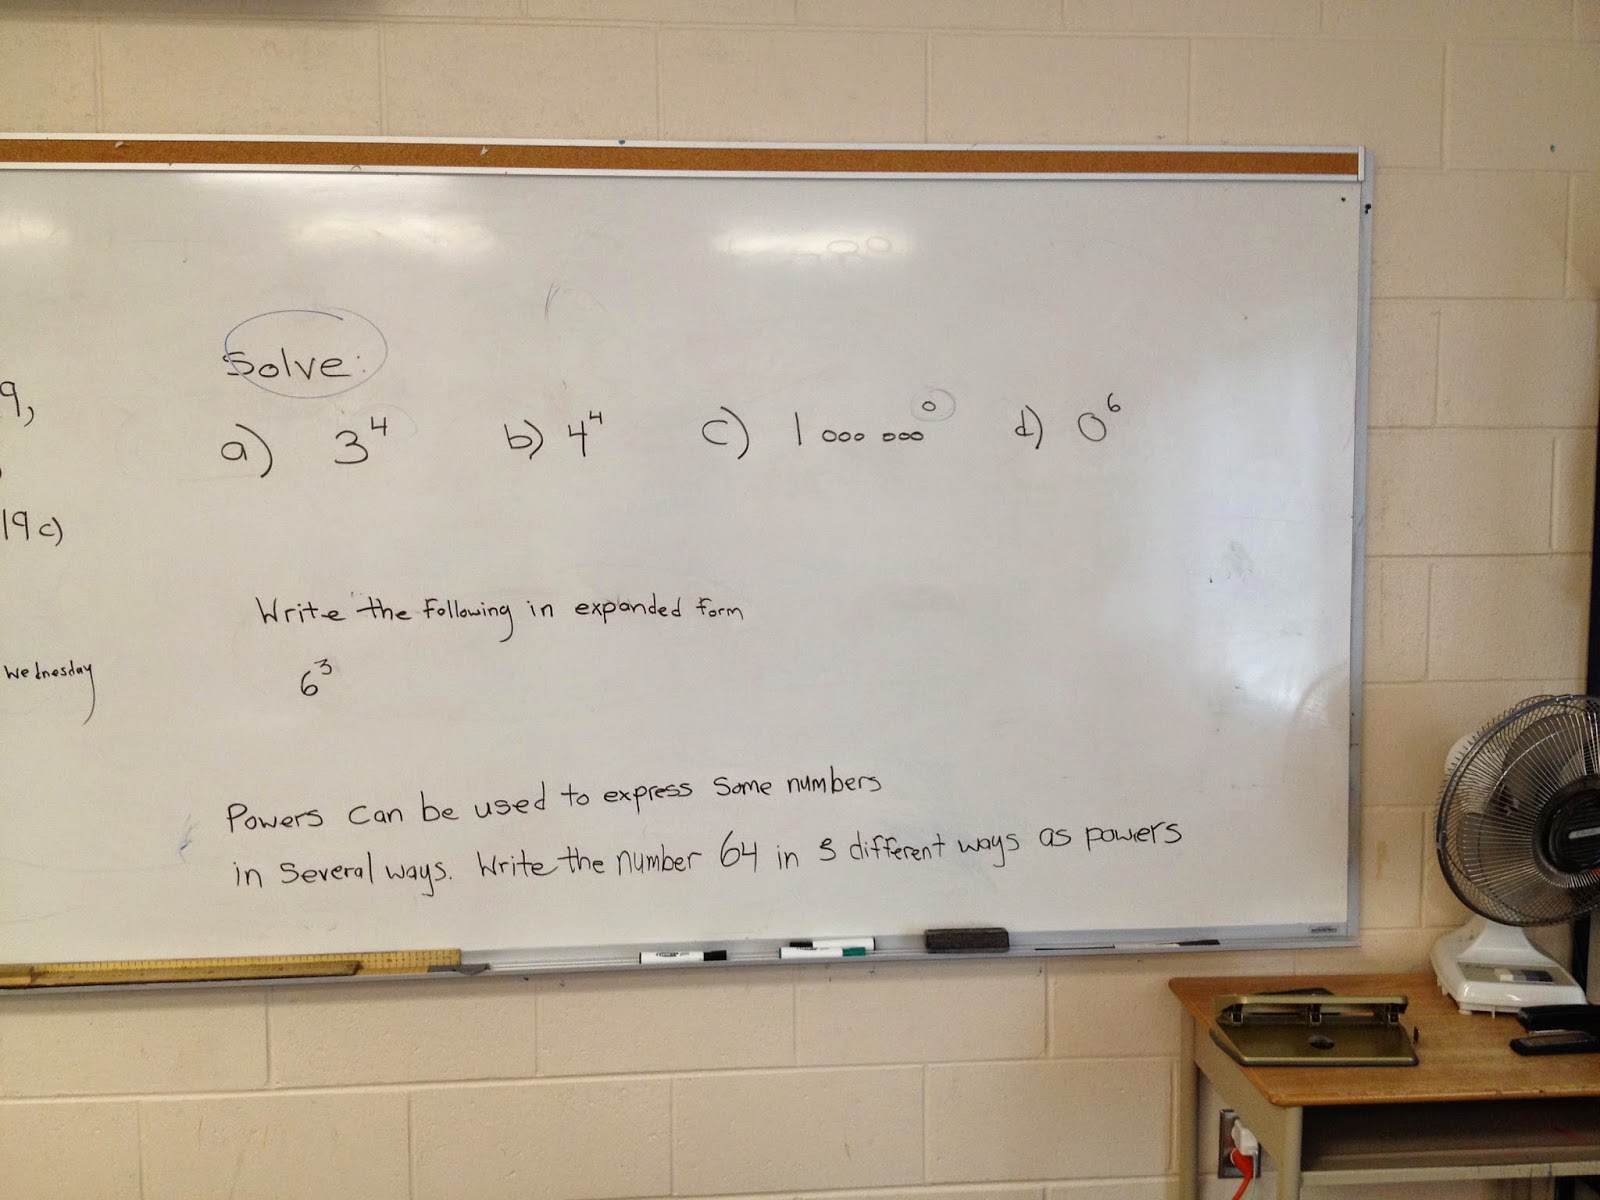 9,
19 c)
Wednesday
Solve:
a) 3⁴ b) 4⁴ c) 1 000 000⁰ d) 0⁶
Write the following in expanded form
6³
Powers can be used to express some numbers
in several ways. Write the number 64 in 3 different ways as powers